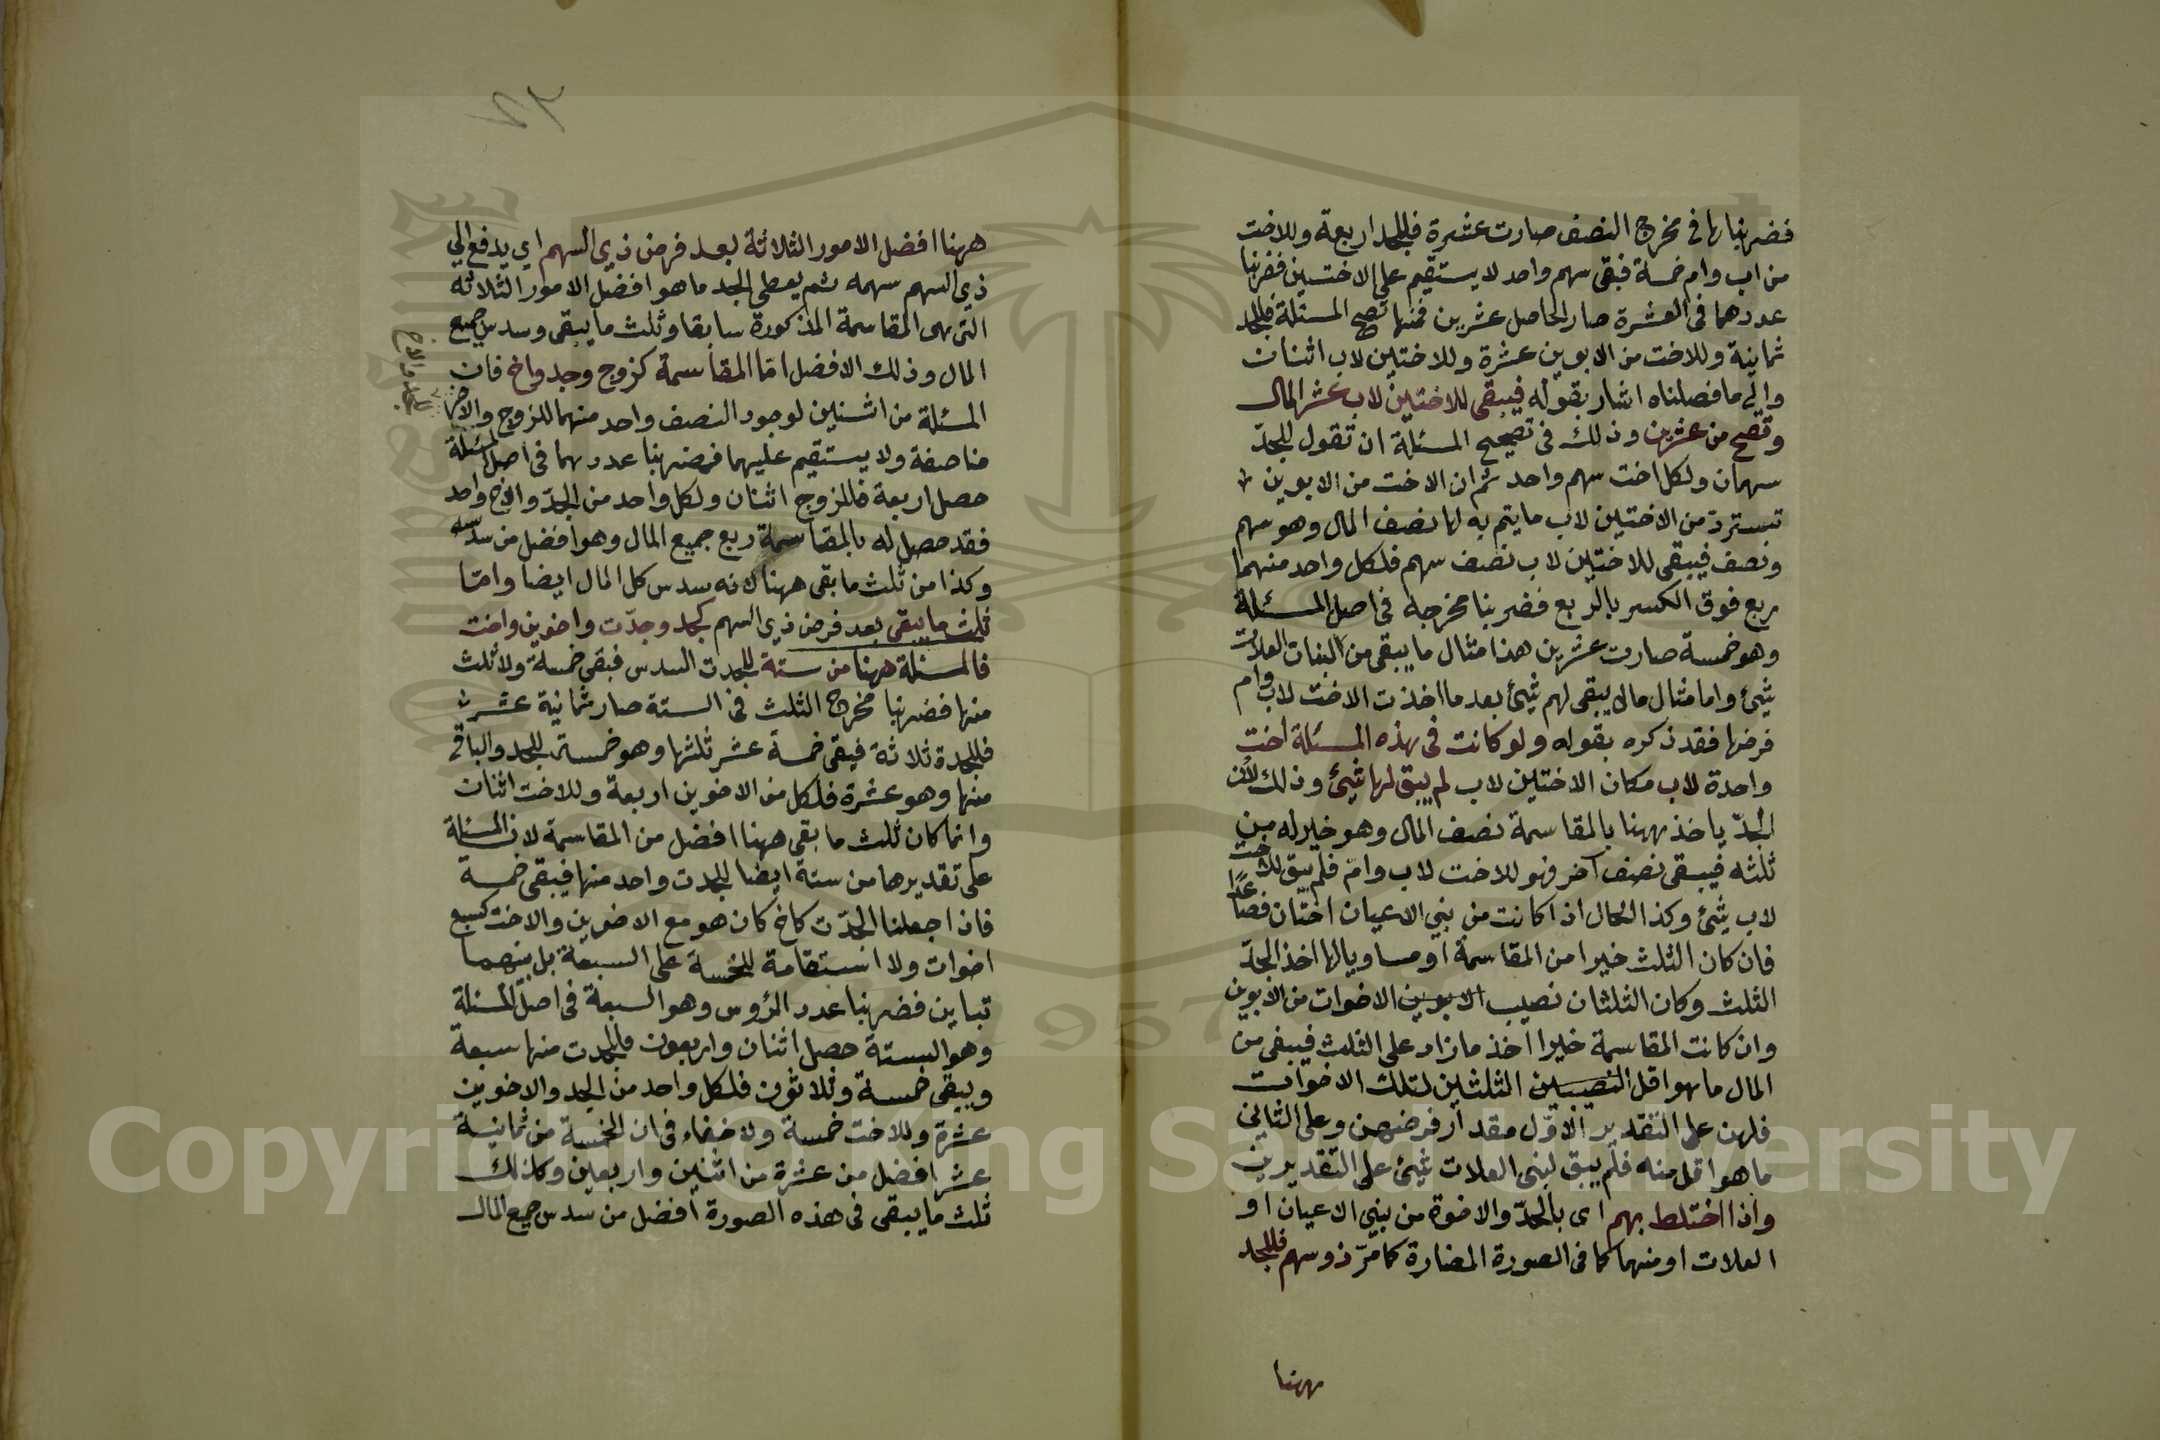 فضربناها فى مخرج النصف صارت عشرة فللجد اربعة وللاخت
من اب وام خمسة فبقى سهم واحد لا يستقيم على الاختين فضربنا
عددهما فى العشرة صار الحاصل عشرين فمنها تصح المسئلة فللجد
ثمانية وللاخت من الابوين عشرة وللاختين لاب اثنان
والى ما فصلناه اشار بقوله فيبقى للاختين لاب عشر المال
وتصح من عشرين وذلك فى تصحيح المسئلة ان تقول للجدّ
سهمان ولكل اخت سهم واحد ثم ان الاخت من الابوين
تسترد من الاختين لاب ما يتم به لها نصف المال وهو سهم
ونصف فيبقى للاختين لاب نصف سهم فلكل واحد منهما
ربع فوق الكسر بالربع فضربنا مخرجه فى اصل المسئلة
وهو خمسة صارت عشرين هذا مثال ما يبقى من البنات العلات
شيئ واما مثال مالا يبقى لهم شيئ بعد ما اخذت الاخت لاب وام
فرضها فقد ذكره بقوله ولو كانت فى هذه المسئلة اخت
واحدة لاب مكان الاختين لاب لم يبق لها شيئ وذلك لأن
الجدّ ياخذ ههنا بالمقاسمة نصف المال وهو خير له من
ثلثه فيبقى نصف آخر فهو للاخت لاب وامّ فلم يبق للاخت
لاب شيئ وكذا الحال اذا كانت من بنى الاعيان اختان فصاعدًا
فان كان الثلث خيرا من المقاسمة او مساويا لها اخذ الجدّ
الثلث وكان الثلثان نصيب الابوين الاخوات من الابوين
وان كانت المقاسمة خيرا اخذ ما زاد على الثلث فيبقى من
المال ما هو اقل النصيبين الثلثين لتلك الاخوات
فلهن على التقدير الاوّل مقدار فرضهن وعلى الثانى
ما هو اقل منه فلم يبق لبنى العلات شيئ على التقديرين
واذا اختلط بهم اى بالجدّ والاخوة من بنى الاعيان او
العلات او منهما كما فى الصورة المضارة كما مّر ذو سهم فللجد
ههنا
ههنا افضل الامور الثلاثة بعد فرض ذي السهم اي يدفع الي
ذي السهم سهمه ثم يعطى الجد ما هو افضل الامور الثلاثة
التى هى المقاسمة المذكورة سابقا وثلث ما يبقى وسدس جميع
المال وذلك الافضل امّا المقاسمة كزوج وجد واخ فان
المسئلة من اثنين لوجود النصف واحد منهما للزوج والاخر
للجد والاخ
مناصفة ولا يستقيم عليهما فضربنا عددهما فى اصل المسئلة
حصل اربعة فللزوج اثنان ولكل واحد من الجدّ والاخ واحد
فقد حصل له بالمقاسمة ربع جميع المال وهو افضل من سدسه
وكذا من ثلث ما بقى ههنا لانه سدس كل المال ايضا وامّا
ثلث ما يبقى بعد فرض ذي السهم كجد وجدّت واخوين واخت
فالمسئلة ههنا من ستة للجدت السدس فبقى خمسة ولا ثلث
منها فضربنا مخرج الثلث فى الستة صار ثمانية عشر
فللجدة ثلاثة فيبقى خمسة عشر ثلثها وهو خمسة للجد والباقى
منها وهو عشرة فلكل من الاخوين اربعة وللاخت اثنان
وانما كان ثلث ما بقى ههنا افضل من المقاسمة لان المسئلة
على تقديرها من ستة ايضا للجدت واحد منها فيبقى خمسة
فاذا جعلنا الجدّت كاخ كان هو مع الاخوين والاخت كسبع
اخوات ولا استقامة للخمسة على السبعة بل بينهما
تباين فضربنا عدد الرؤس وهو السبعة فى اصل المسئلة
وهو الستة حصل اثنان واربعون فللجدت منها سبعة
ويبقى خمسة وثلاثون فلكل واحد من الجد والاخوين
عشرة وللاخت خمسة ولا خفاء فى ان الخمسة من ثمانية
عشر افضل من عشرة من اثنين واربعين وكذلك
ثلث ما يبقى فى هذه الصورة افضل من سدس جميع المال
1957
Copyright © King Saud University